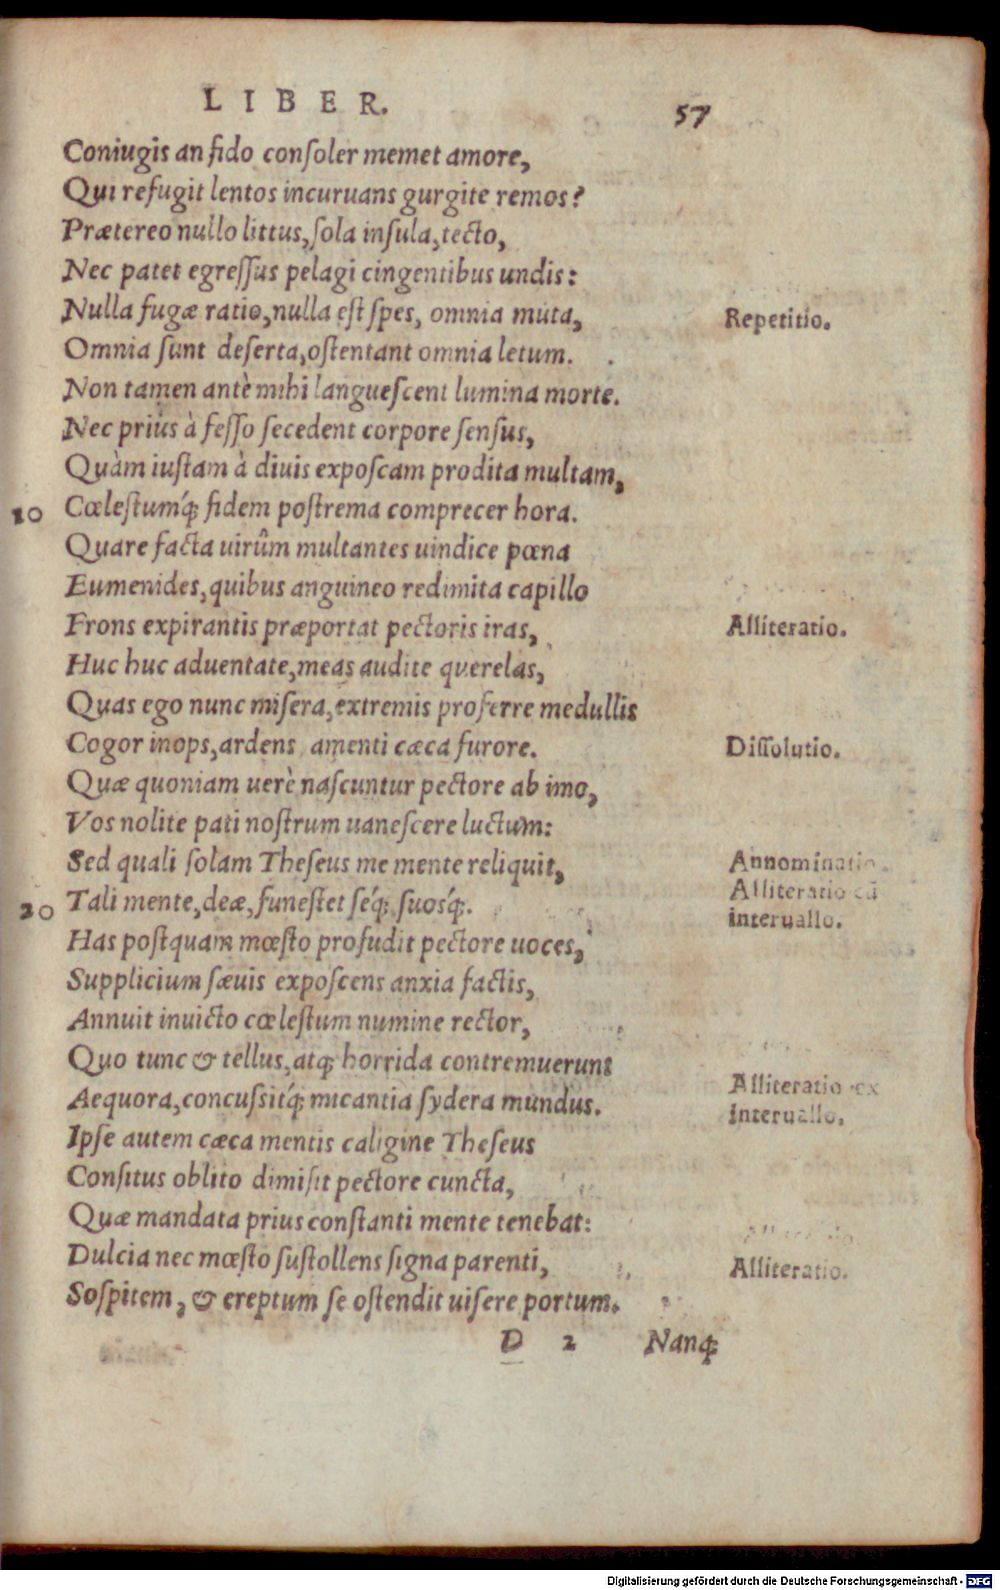 LIBER. 57
Coniugis an fido conſoler memet amore,
Qui refugit lentos incuruans gurgite remos?
Prætereo nullo littus, ſola inſula, tecto,
Nec patet egreſſus pelagi cingentibus undis:
Nulla fugæ ratio, nulla eſt ſpes, omnia muta, Repetitio.
Omnia ſunt deſerta, oſtentant omnia letum.
Non tamen antè mihi langueſcent lumina morte.
Nec priùs à feſſo ſecedent corpore ſenſus,
Quàm iuſtam à diuis expoſcam prodita multam,
10 Cœleſtumq́; fidem poſtrema comprecer hora.
Quare facta uirûm multantes uindice pœna
Eumenides, quibus anguineo redimita capillo
Frons expirantis præportat pectoris iras, Alliteratio.
Huc huc aduentate, meas audite querelas,
Quas ego nunc miſera, extremis proferre medullis
Cogor inops, ardens amenti cæca furore. Diſſolutio.
Quæ quoniam uerè naſcuntur pectore ab imo,
Vos nolite pati noſtrum uaneſcere luctum:
Sed quali ſolam Theſeus me mente reliquit, Annominatio.
20 Tali mente, deæ, funeſtet ſéq; ſuosq́;. Alliteratio eũ
interuallo.
Has poſtquam mœſto profudit pectore uoces,
Supplicium ſæuis expoſcens anxia factis,
Annuit inuicto cœleſtum numine rector,
Quo tunc & tellus, atq; horrida contremuerunt
Aequora, concuſsitq́; micantia ſydera mundus. Alliteratio ex
interuallo.
Ipſe autem cæca mentis caligine Theſeus
Conſitus oblito dimiſit pectore cuncta,
Quæ mandata prius conſtanti mente tenebat:
Dulcia nec mœſto ſuſtollens ſigna parenti, Alliteratio.
Soſpitem, & ereptum ſe oſtendit uiſere portum.
D 2 Nanq;
Digitalisierung gefördert durch die Deutsche Forschungsgemeinschaft - DFG